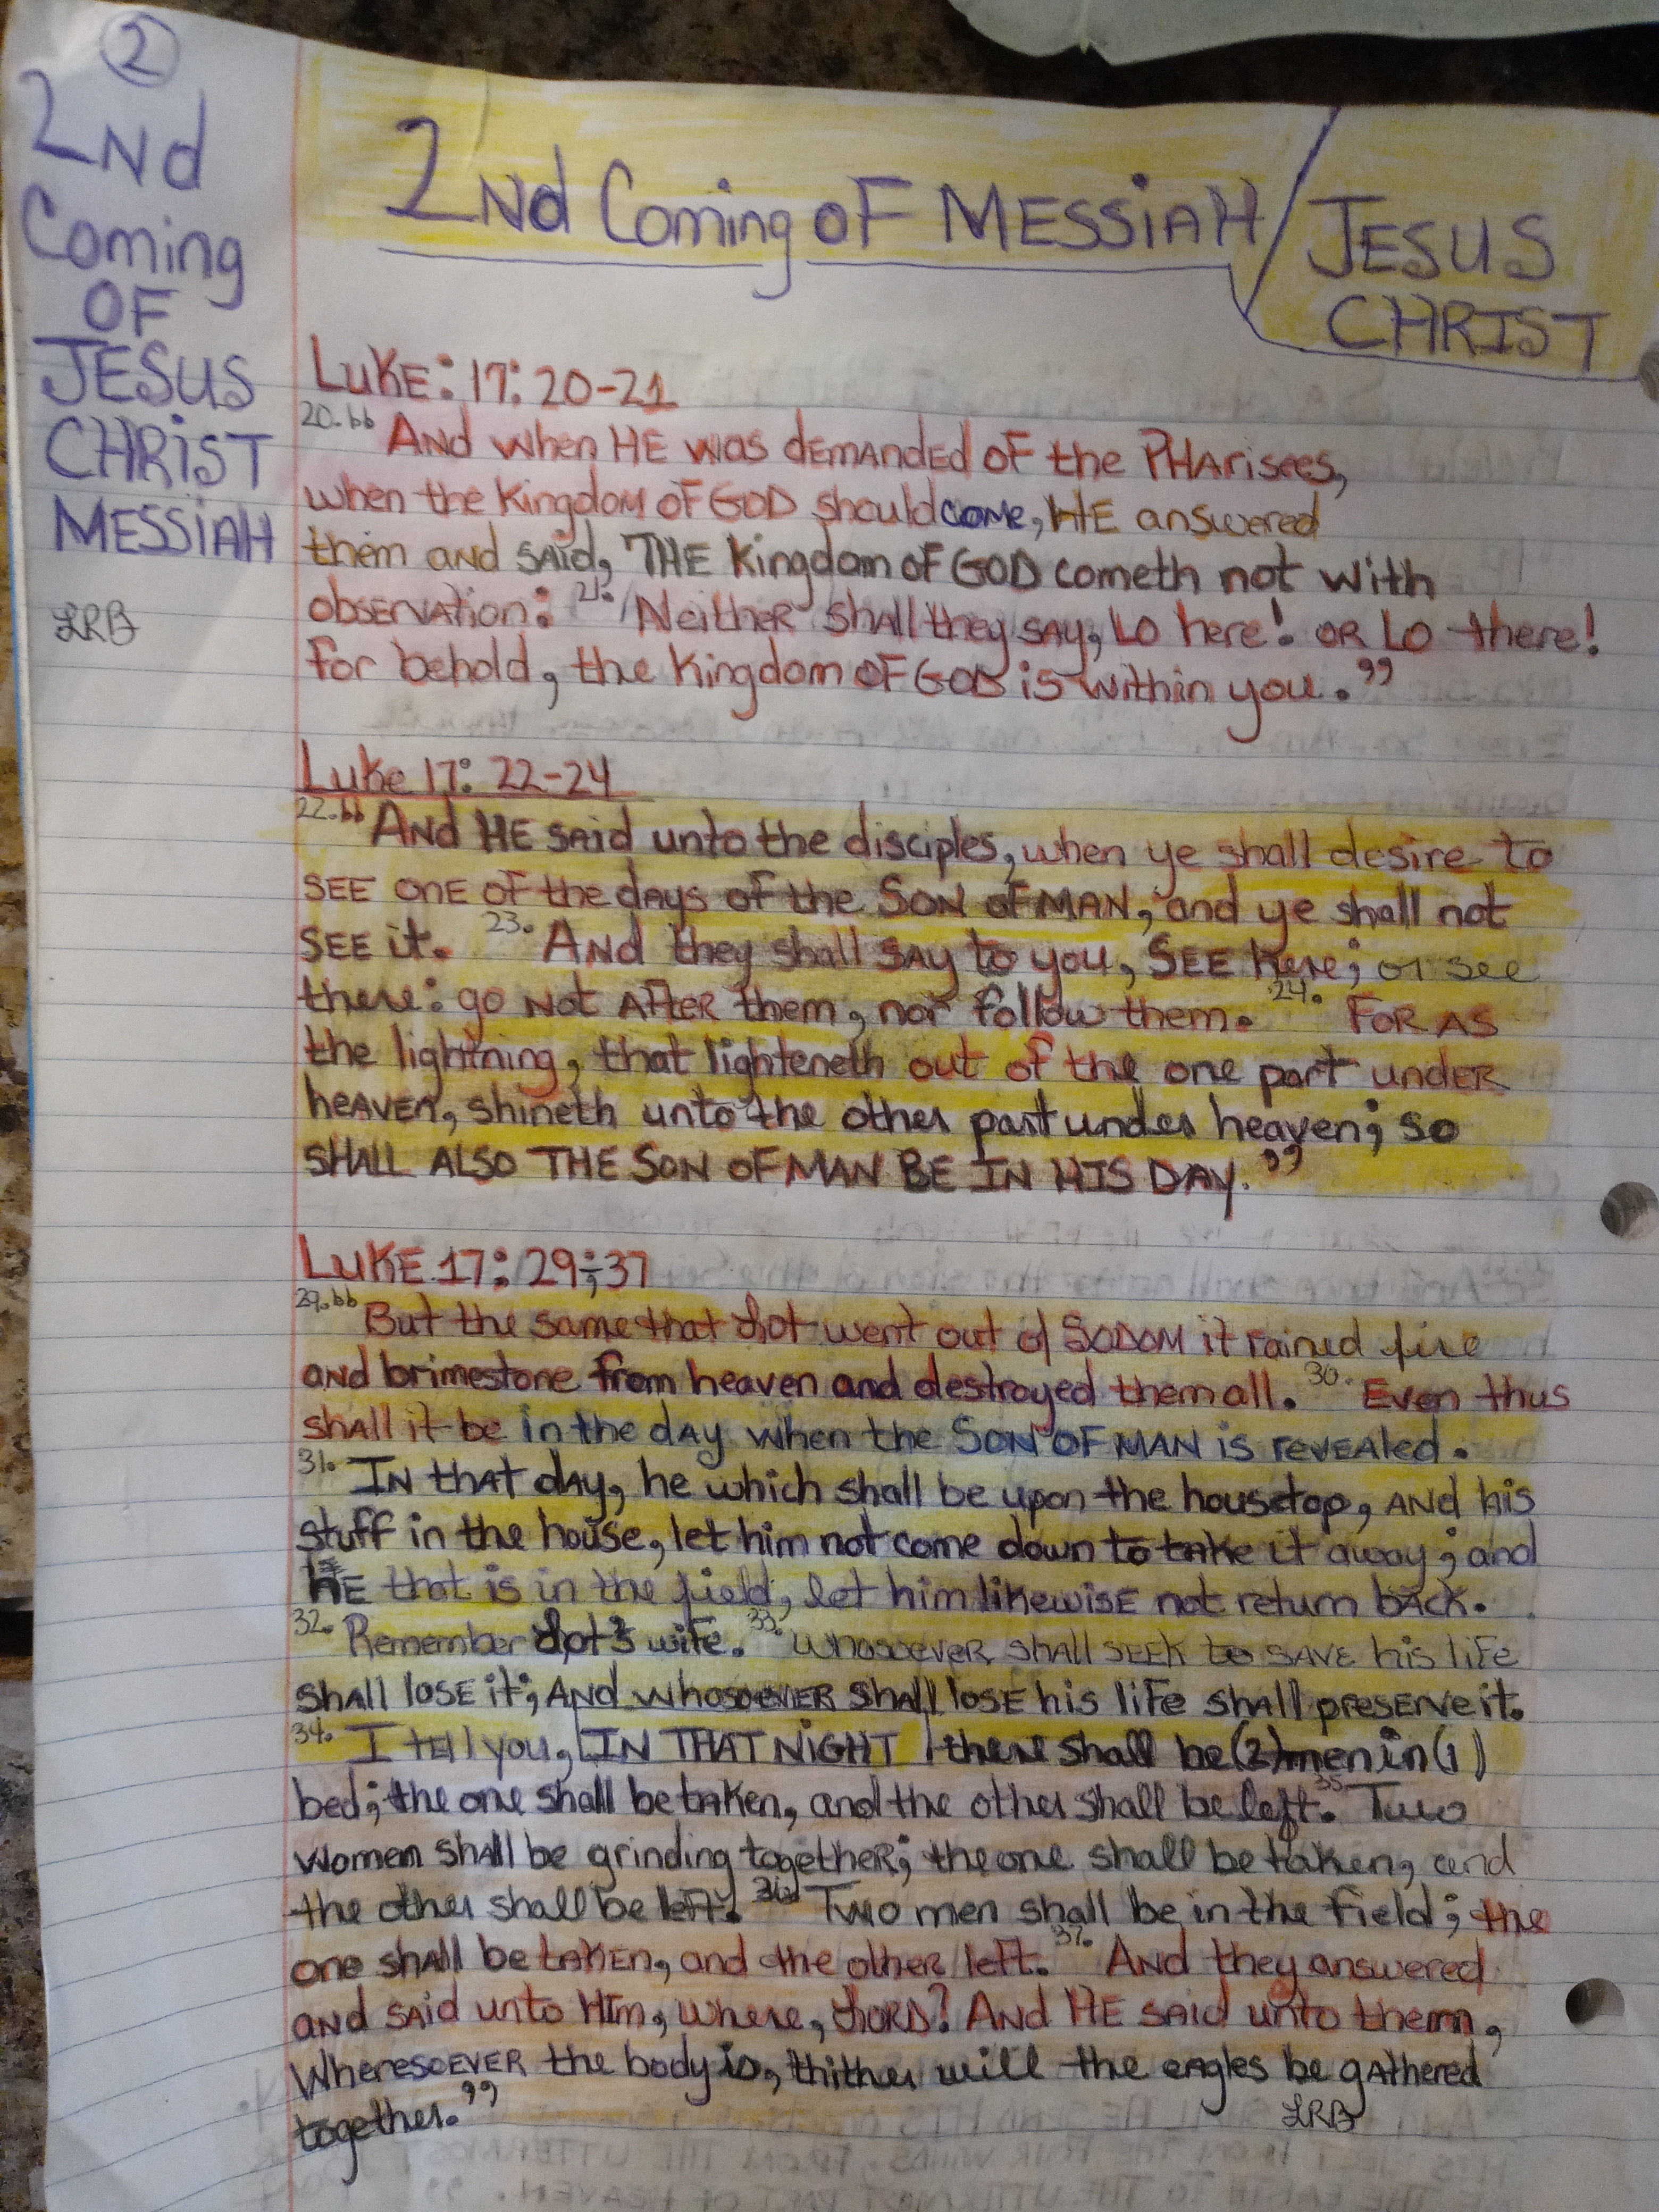 ②
2Nd
Coming
OF
JESUS
CHRIST
MESSIAH
LRB
2Nd Coming OF MESSIAH / JESUS
CHRIST
LUKE: 17: 20-21
20. " AND when HE was dEMANdED OF the PHArisees,
when the Kingdom OF GOD should come, HE answered
them AND SAID, THE Kingdom OF GOD cometh not with
observation: 21. Neither shall they SAY, LO here! OR LO there!
for behold, the Kingdom OF GOD is within you."
Luke 17: 22-24
22. " AND HE SAID unto the disciples, when ye shall desire to
SEE ONE OF the days of the SON OF MAN, and ye shall not
SEE it. 23. AND they shall SAY to you, SEE here; or see
there: go NOT AFTER them, nor follow them. 24. FOR AS
the lightning, that lighteneth out of the one part under
heaven, shineth unto the other part under heaven; so
SHALL ALSO THE SON OF MAN BE IN HIS DAY."
LUKE 17: 29;37
29. " But the same that Lot went out of SODOM it rained fire
AND brimestone from heaven and destroyed them all. 30. Even thus
shall it be in the day when the SON OF MAN is revealed.
31. IN that day, he which shall be upon the housetop, AND his
stuff in the house, let him not come down to take it away; and
HE that is in the field, let him likewise not return back.
32. Remember Lot's wife. 33. Whosoever shall SEEK to SAVE his life
shall lose it; AND whosoever shall lose his life shall preserve it.
34. I tell you, IN THAT NIGHT there shall be (2) men in (1)
bed; the one shall be taken, and the other shall be left. 35. Two
women shall be grinding together; the one shall be taken, and
the other shall be left. 36. Two men shall be in the field; the
one shall be taken, and the other left. 37. AND they answered
AND SAID unto HIM, where, LORD? AND HE SAID unto them,
Wheresoever the body is, thither will the eagles be gathered
together."
LRB